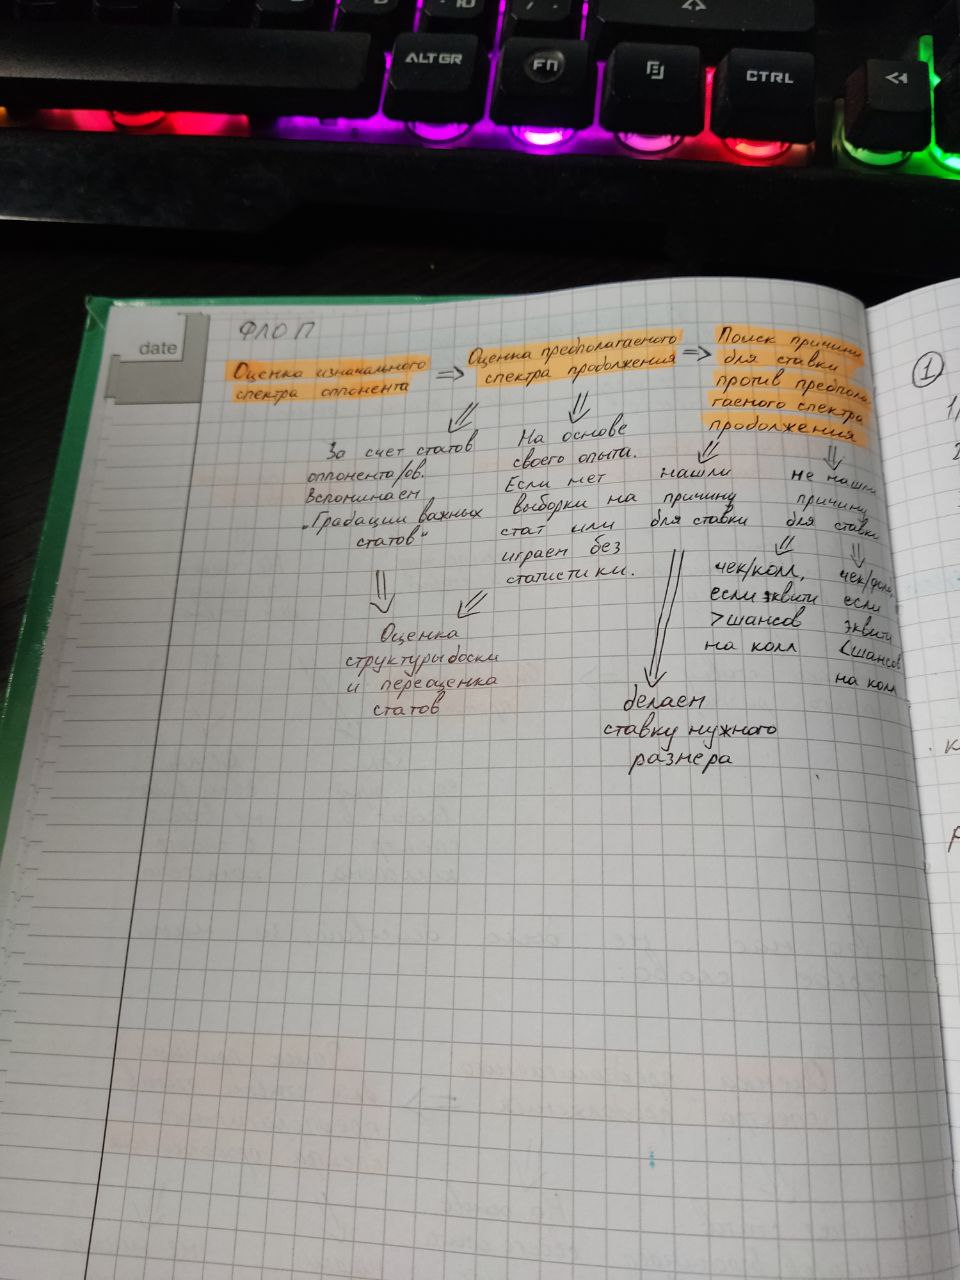 ALTGR
Fn
CTRL
date
ФЛОП
Оценка изначального
спектра оппонента
=>
Оценка предполагаемого
спектра продолжения
=>
Поиск причины
для ставки
против предпола
гаемого спектра
продолжения
За счет статов
оппонента/ов.
Вспоминаем
„Градации важных
статов"
На основе
своего опыта.
Если нет
выборки на
стат или
играем без
статистики.
Оценка
структуры доски
и переоценка
статов
нашли
причину
для ставки
не нашли
причину
для ставки
делаем
ставку нужного
размера
чек/колл,
если эквити
>шансов
на колл
чек/фолд
если
эквити
<шансов
на колл
1